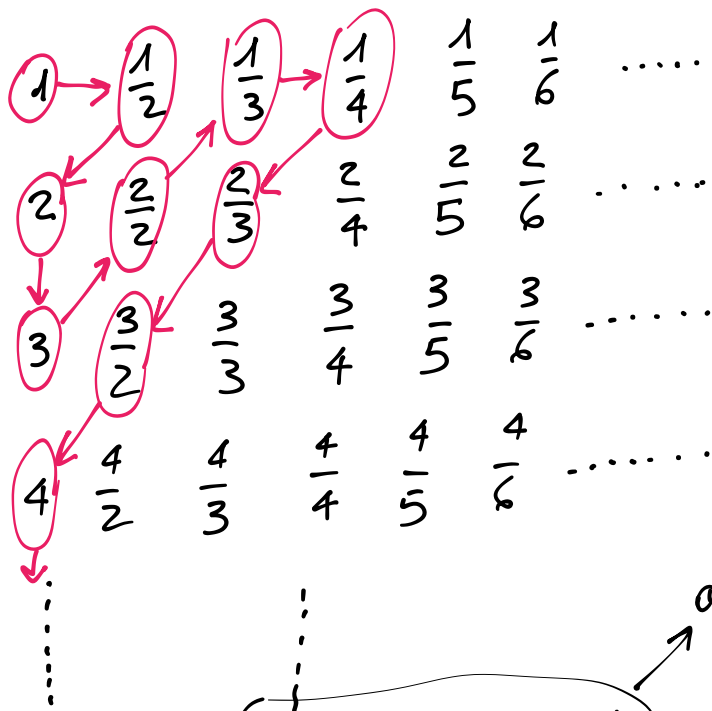 1 → 1/2 1/3 → 1/4 1/5 1/6 .....
2 2/2 2/3 2/4 2/5 2/6 .....
3 3/2 3/3 3/4 3/5 3/6 .......
4 4/2 4/3 4/4 4/5 4/6 .......